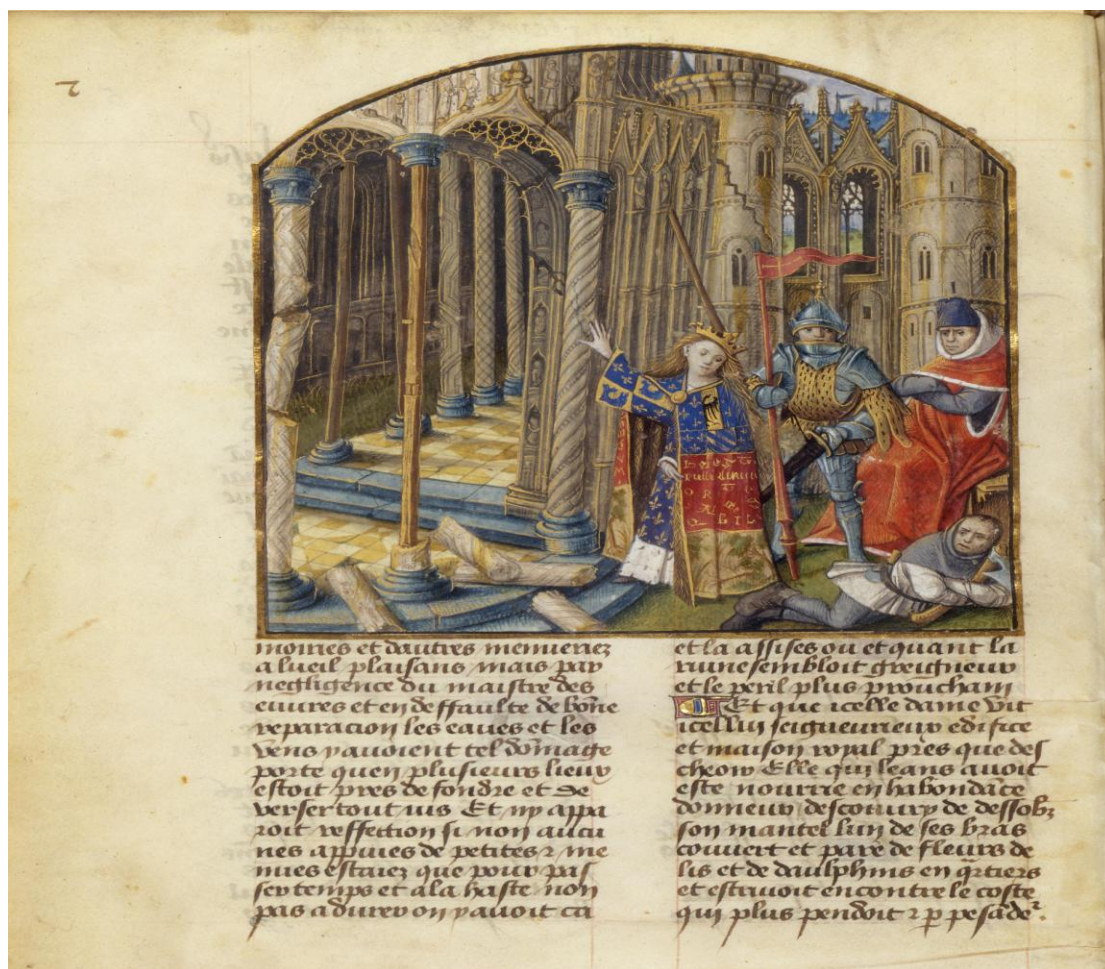 moiries et dautres menueriez
a lueil plaisans mais par
negligence du maistre des
euures et en deffaulte de bone
reparacion les eaues et les
vens y auoient tel domage
porte quen plusieurs lieux
estoit pres de fondre et de
verser tout ius Et ny appa
roit reffection si non aucu
nes appuies de petites ⁊ me
nues estaiez que pour pas
ser temps et a la haste non
pas a durer on y auoit ca
et la assises ou et quant la
ruine sembloit greigneur
et le peril plus prouchain
Et que icelle dame vit
icellui seigneurieux edifice
et maison royal pres que des
cheoir Elle qui leans auoit
este nourrie en habondace
donneur descouury de dessobz
son mantel lun de ses bras
couuert et pare de fleurs de
lis et de daulphins en qrtiers
et estaioit encontre le coste
qui plus pendoit ⁊ p pesade